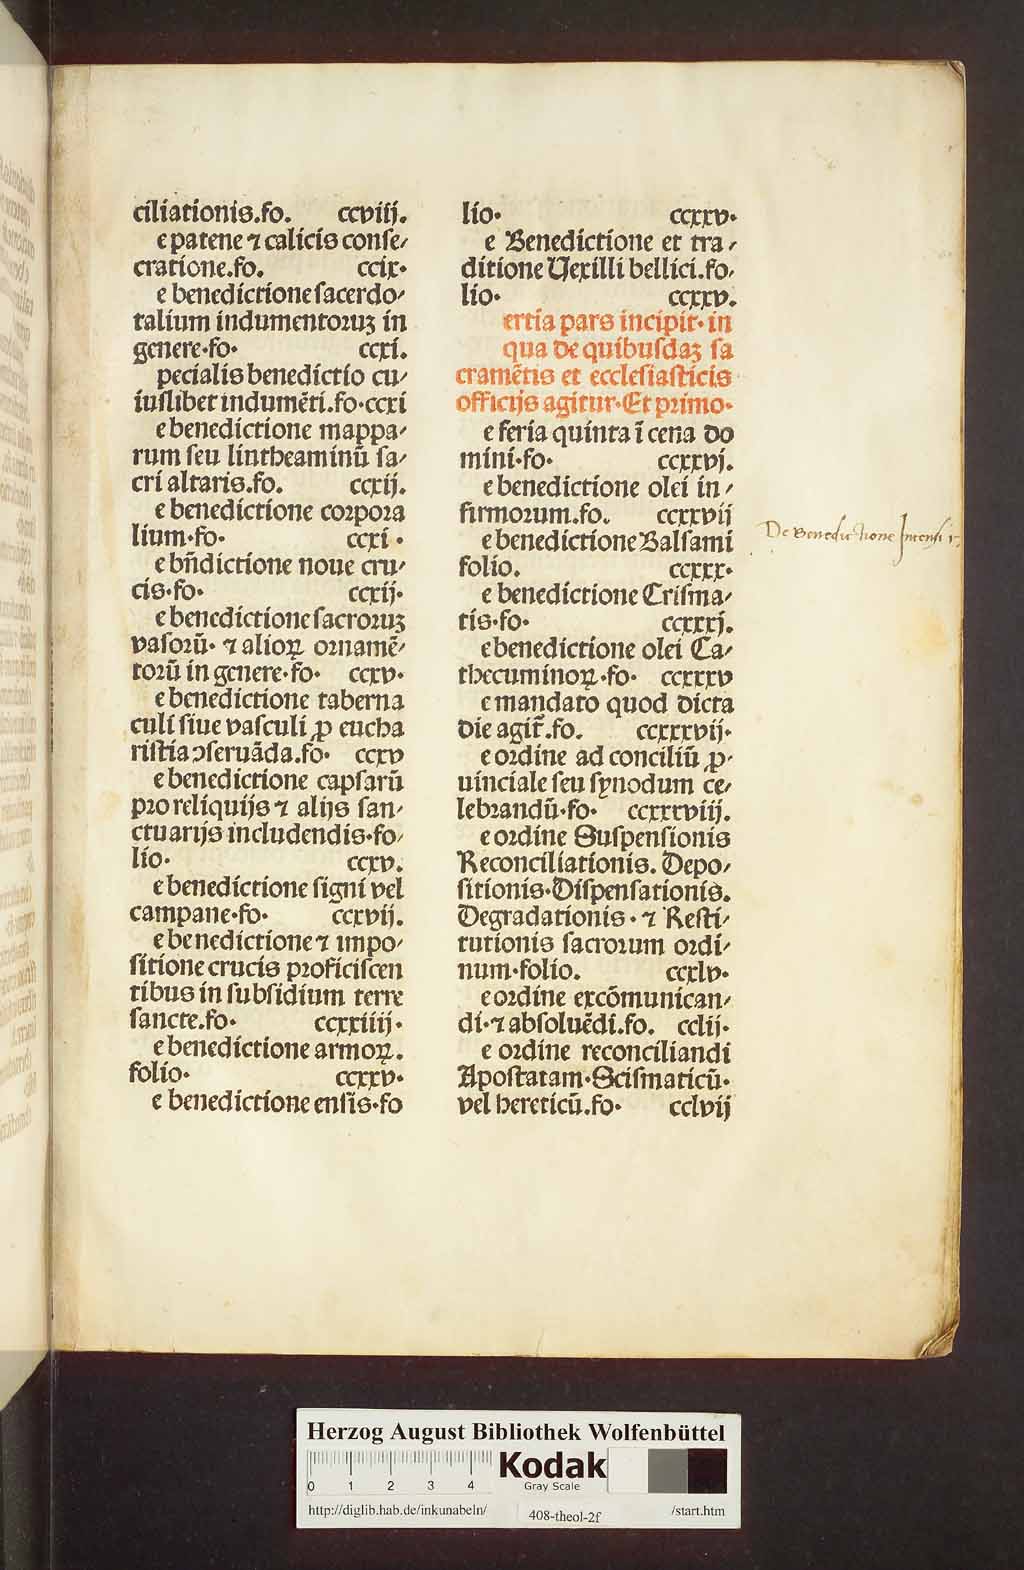 ciliationis.fo. ccviij.
e patene ⁊ calicis conse⸗
cratione.fo. ccix·
e benedictione sacerdo⸗
talium indumentoꝝ in
genere·fo· ccxi.
pecialis benedictio cu⸗
iuslibet indumẽti.fo·ccxi
e benedictione mappa⸗
rum seu lintheaminũ sa⸗
cri altaris.fo. ccxij.
e benedictione corpora
lium·fo· ccxi·
e bñdictione noue cru⸗
cis·fo· ccxij·
e benedictione sacroruꝫ
vasorũ· ⁊ alioꝝ ornamẽ⸗
torũ in genere·fo· ccxv·
e benedictione taberna
culi siue vasculi ꝓ eucha
ristia ↄseruãda.fo· ccxv
e benedictione capsarũ
pro reliquijs ⁊ alijs san⸗
ctuarijs includendis·fo⸗
lio· ccxv.
e benedictione signi vel
campane·fo· ccxvij.
e benedictione ⁊ impo⸗
sitione crucis proficiscen
tibus in subsidium terre
sancte.fo· ccxxiiij·
e benedictione armoꝝ.
folio· ccxxv·
e benedictione ensis·fo
lio· ccxxv·
e Benedictione et tra⸗
ditione Uexilli bellici.fo⸗
lio· ccxxv.
ertia pars incipit· in
qua de quibusdaꝫ sa
cramẽtis et ecclesiasticis
officijs agitur·Et primo·
e feria quinta ĩ cena do
mini·fo· ccxxvj.
e benedictione olei in⸗
firmorum.fo. ccxxvij
e benedictione Balsami
folio. ccxxx·
e benedictione Crisma⸗
tis·fo· ccxxxj.
e benedictione olei Ca⸗
thecuminoꝝ·fo· ccxxxv
e mandato quod dicta
die agit̃.fo. ccxxxvij·
e ordine ad conciliũ ꝓ⸗
uinciale seu synodum ce⸗
lebrandũ·fo· ccxxxviij.
e ordine Suspensionis
Reconciliationis. Depo⸗
sitionis·Dispensationis.
Degradationis· ⁊ Resti⸗
tutionis sacrorum ordi⸗
num·folio. ccxlv·
e ordine excõmunican⸗
di·⁊ absoluẽdi.fo. cclij·
e ordine reconciliandi
Apostatam·Scismaticũ·
vel hereticũ.fo· cclvij
De Benedictione Incensi
Herzog August Bibliothek Wolfenbüttel
0 1 2 3 4
Kodak
Gray Scale
http://diglib.hab.de/inkunabeln/ 408-theol-2f /start.htm